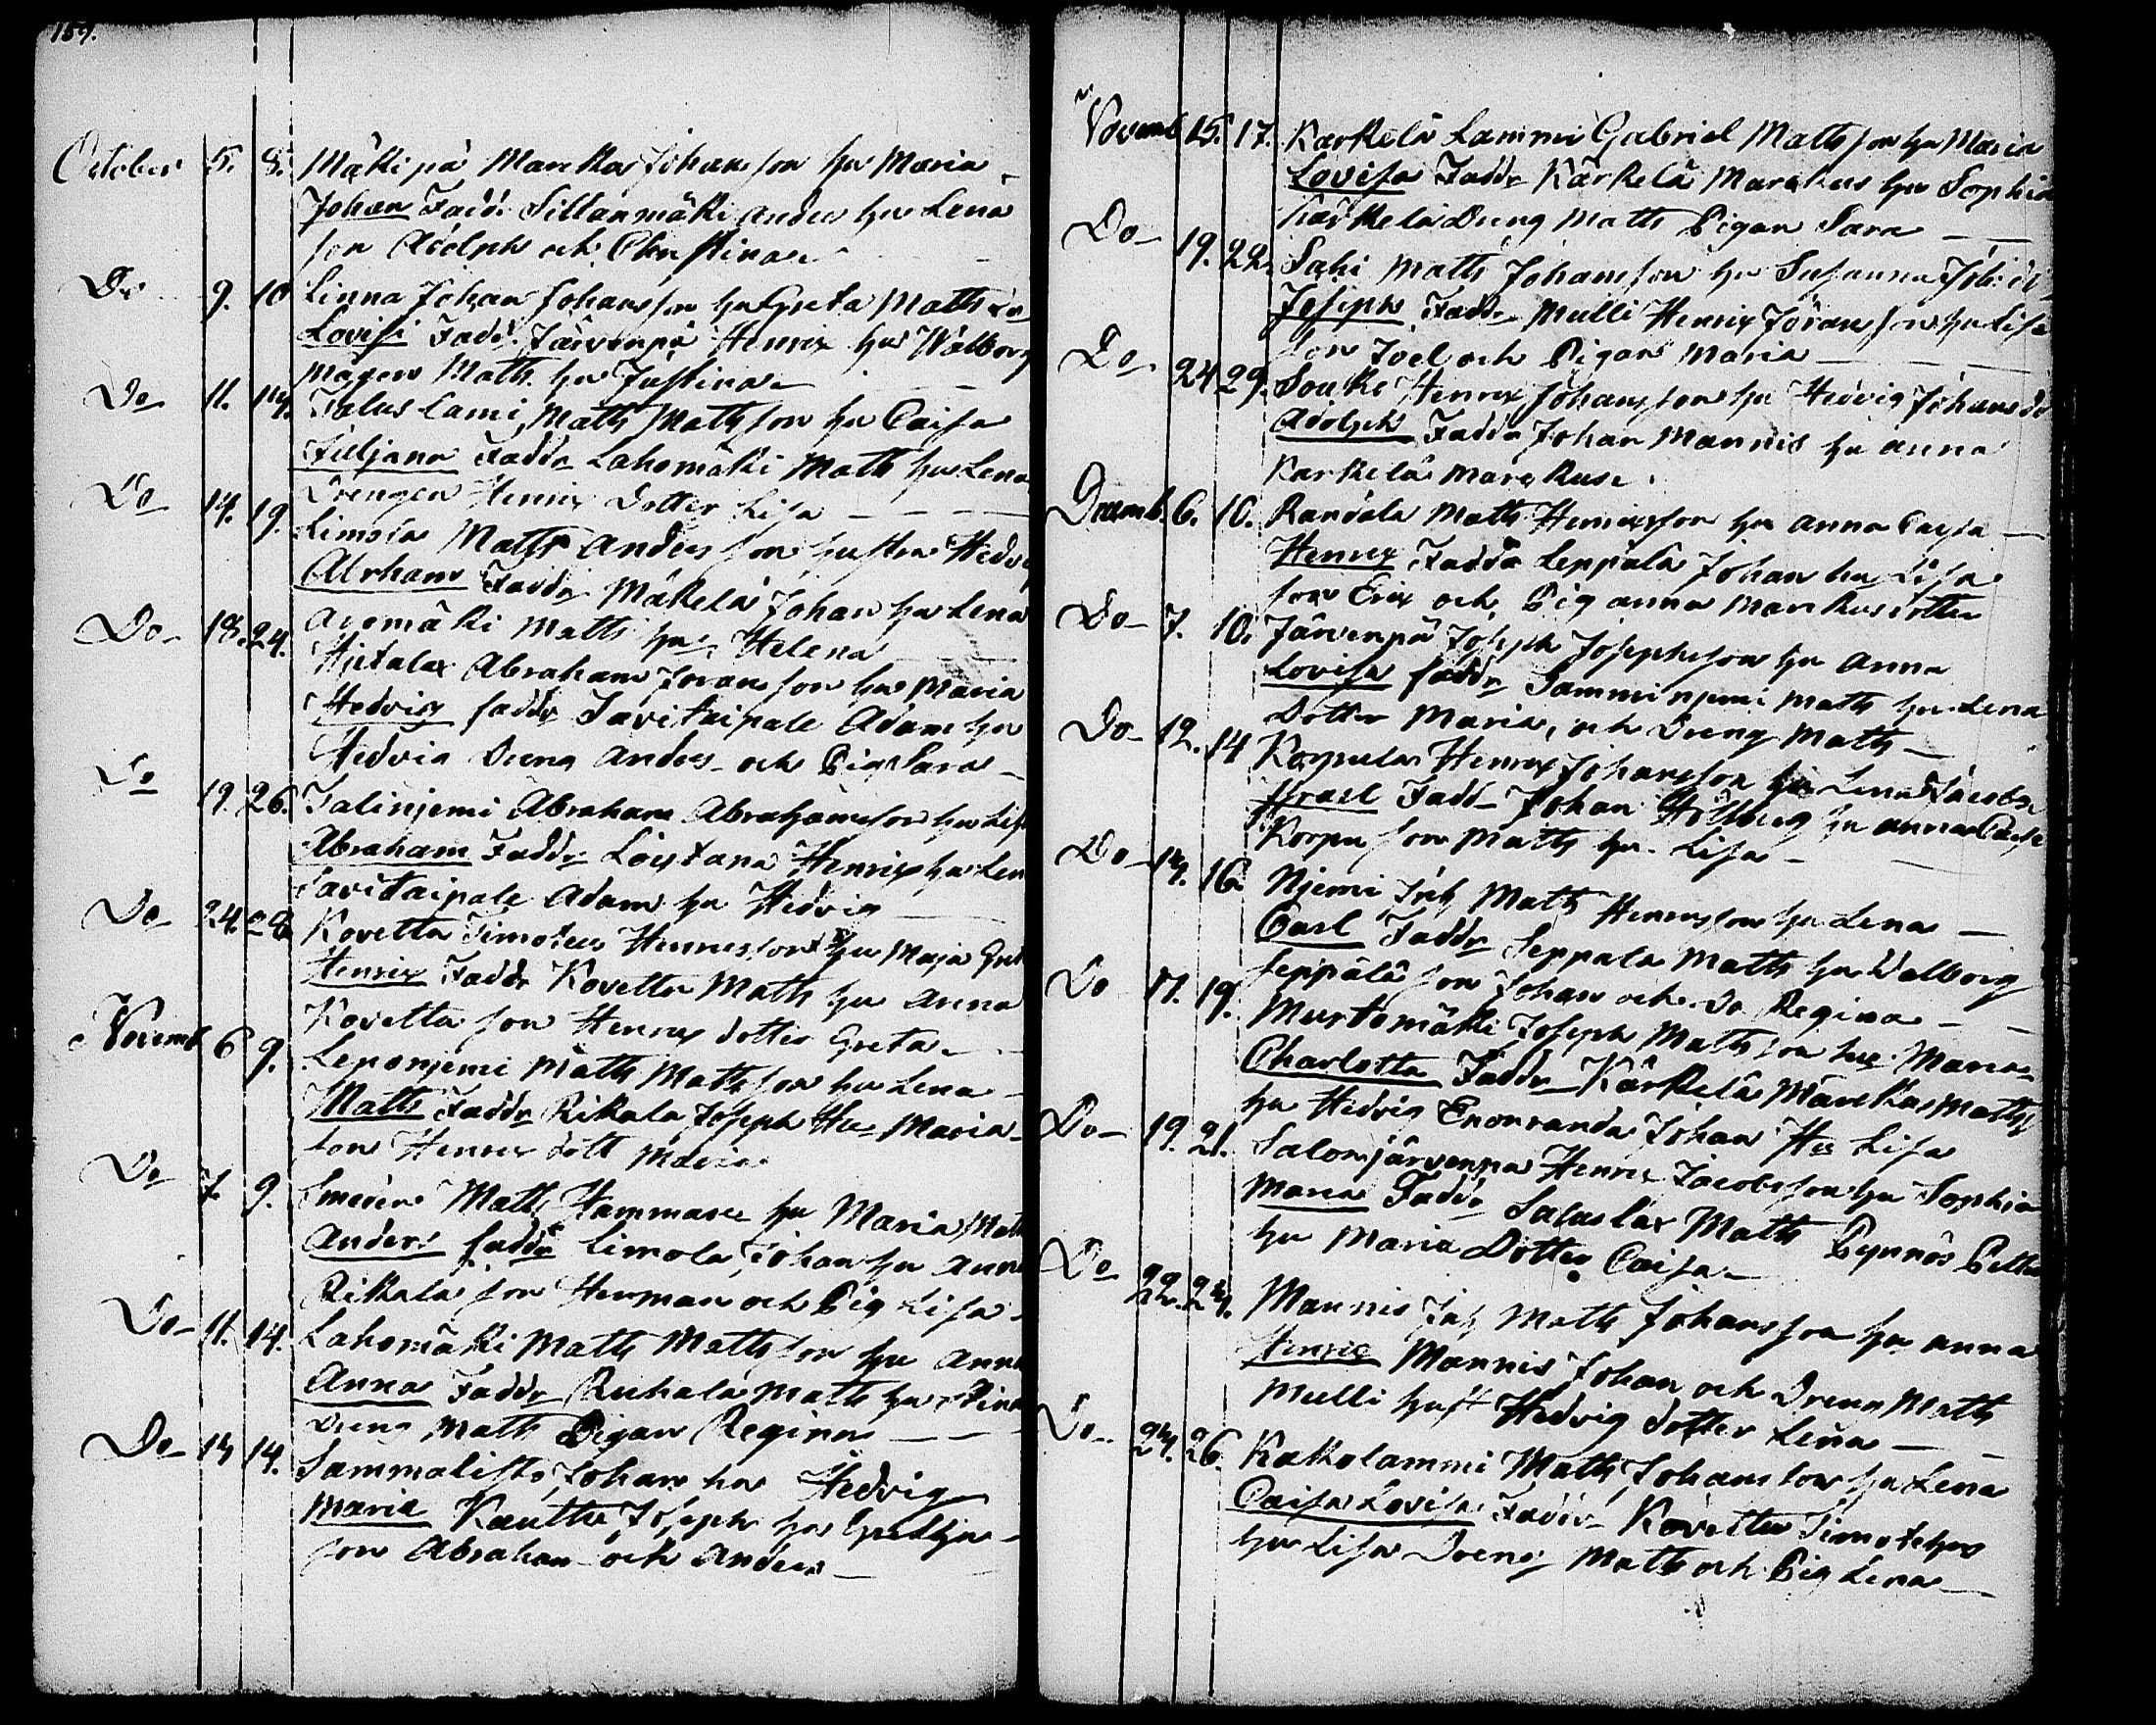 159.
October 5. 8. Mäkipä Marckus Johansson hu Maria
Johan Fadd. Sillanmäki Anders hu Lena
son Adolph och Christina
Do 9. 10 Linna Johan Johansson hu Greta Matts dr
Lovisa Fadd. Järvenpä Henrix hu Walborg
Mågen Matts hu Justina
Do 11. 14. Matts Mattsson hu Caisa
Faddr Lahomäki Matts hu Lena
Drengen Henrix Dotter Lisa
Do 14. 19. Limola Matts Andersson hustru Hedvig
Abrham Faddr Mäkelä Johan hu Lena
Matts hu Helena
Do 18. 24. Hjetalax Abraham Joransson hu Maria
Hedvig faddr Savitaipale Adam hu
Hedvig Dreng Anders och Pig Sara
Do 19. 26. Salinjemi Abraham Abrahamsson hu Lisa
Abraham Faddr Löytana Henrix hu Lena
Savitaipale Adam hu Hedvig
Do 24. 28 Kovetta Timoteus Henrixson hu Maja Greta
Henrix Faddr Kovetta Matts hu Anna
Kovetta son Henrix dotter Greta
Novemb 6 9. Leponjemi Matts Mattsson hu Lena
Matts Faddr Rikala Joseph Hu Maria
son Henrix dott Maria
Do 7. 9. Smeden Matts Hammare hu Maria Matts
Anders faddr Limola Johan hu Anna
Rikala son Herman och Pig Lisa
Do 11. 14. Lahomäki Matts Mattsson hu Anna
Anna Faddr Ruhala Matts hu Stina
Dreng Matts Pigan Regina
Do 14. Sammalisto Johan hu Hedvig
Maria Kautta Joseph hu
son Abraham och Anders
Novemb 15. 17. Karkela Lammi Gabriel Mattsson hu Maria
Lovisa Faddr Kärkelä Marckus hu Sophia
Kärkelä Dreng Matts Pigan Sara
Do 19. 22. Saki Matts Johansson hu Susanna Joh:
Joseph Faddr Mulli Henrix Jöransson hu Lisa
son Joel och Pigan Maria
Do 24 29. Souka Henrix Johansson hu Hedvig Johans dr
Adolph Faddr Johan Mannis hu Anna
Karkela Marckus
Decemb. 6. 10. Randala Matts Henrixson hu Anna Caisa
Henrix Faddr Leppälä Johan hu Lisa
son Erix och Pig Anna Marckusdotter
Do 7. 10. Järvenpä Joseph Josephsson hu Anna
Lovisa faddr Samminjemi Matts hu Lena
Dotter Maria, och Dreng Matts
Do 12. 14 Korpula Henrix Johansson hu Lena Jacobs
Israel Fadd Johan Holberg hu Anna Caisa
Korpu son Matts hu Lisa
Do 14. 16. Njemi Matts Henrixson hu Lena
Carl Faddr Seppala Matts hu Walborg
Seppälä son Johan och Do Regina
Do 17. 19. Murtomäki Joseph Mattsson hu Maria
Charlotta Faddr Kärkelä Marckus Matts
hu Hedvig Enonranda Johan Hu Lisa
Do 19. 21. Salonjärvenpa Henrix Jacobsson hu Sophia
Maria Faddr Salaslax Matts Pynnös Petter
hu Maria Dotter Caisa
Do 22. 24. Mannis Matts Johansson hu Anna
Henrix Mannis Johan och Dreng Matts
Mulli hust Hedvig dotter Lena
Do 24. 26. Kakolammi Matts Johansson hu Lena
Caisa Lovisa Faddr Kovetta Timoteus
hu Lisa Dreng Matts och Pig Lena